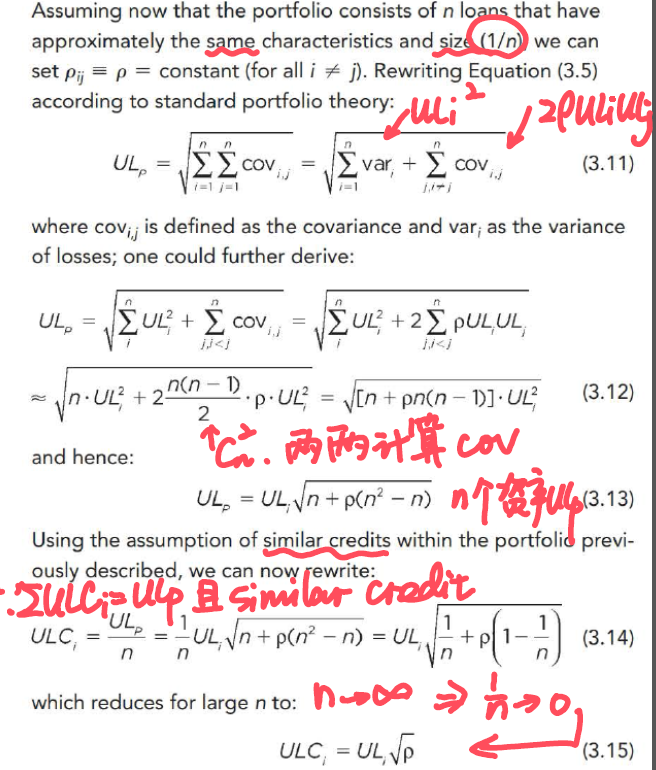 Assuming now that the portfolio consists of n loans that have
approximately the same characteristics and size (1/n), we can
set ρij ≡ ρ = constant (for all i ≠ j). Rewriting Equation (3.5)
according to standard portfolio theory:
ULi² 2ρULiULj
UL_p = √(Σ_{i=1}^{n} Σ_{j=1}^{n} cov_{i,j}) = √(Σ_{i=1}^{n} var_i + Σ_{j,i≠j}^{n} cov_{i,j}) (3.11)
where cov_{i,j} is defined as the covariance and var_i as the variance
of losses; one could further derive:
UL_p = √(Σ_{i}^{n} UL_i² + Σ_{j,i<j}^{n} cov_{i,j}) = √(Σ_{i}^{n} UL_i² + 2Σ_{j,i<j}^{n} ρUL_iUL_j)
≈ √(n·UL_i² + 2 n(n − 1)/2 ·ρ·UL_i²) = √([n + ρn(n − 1)]·UL_i²) (3.12)
↑C_n². 两两计算 cov
and hence:
UL_p = UL_i√(n + ρ(n² − n)) (3.13)
n个资产ULp
Using the assumption of similar credits within the portfolio previ-
ously described, we can now rewrite:
∵ΣULCi=ULp 且 similar credit
ULC_i = UL_p/n = 1/n UL_i√(n + ρ(n² − n)) = UL_i√(1/n + ρ(1 − 1/n)) (3.14)
which reduces for large n to: n→∞ ⇒ 1/n→0
ULC_i = UL_i√ρ (3.15)